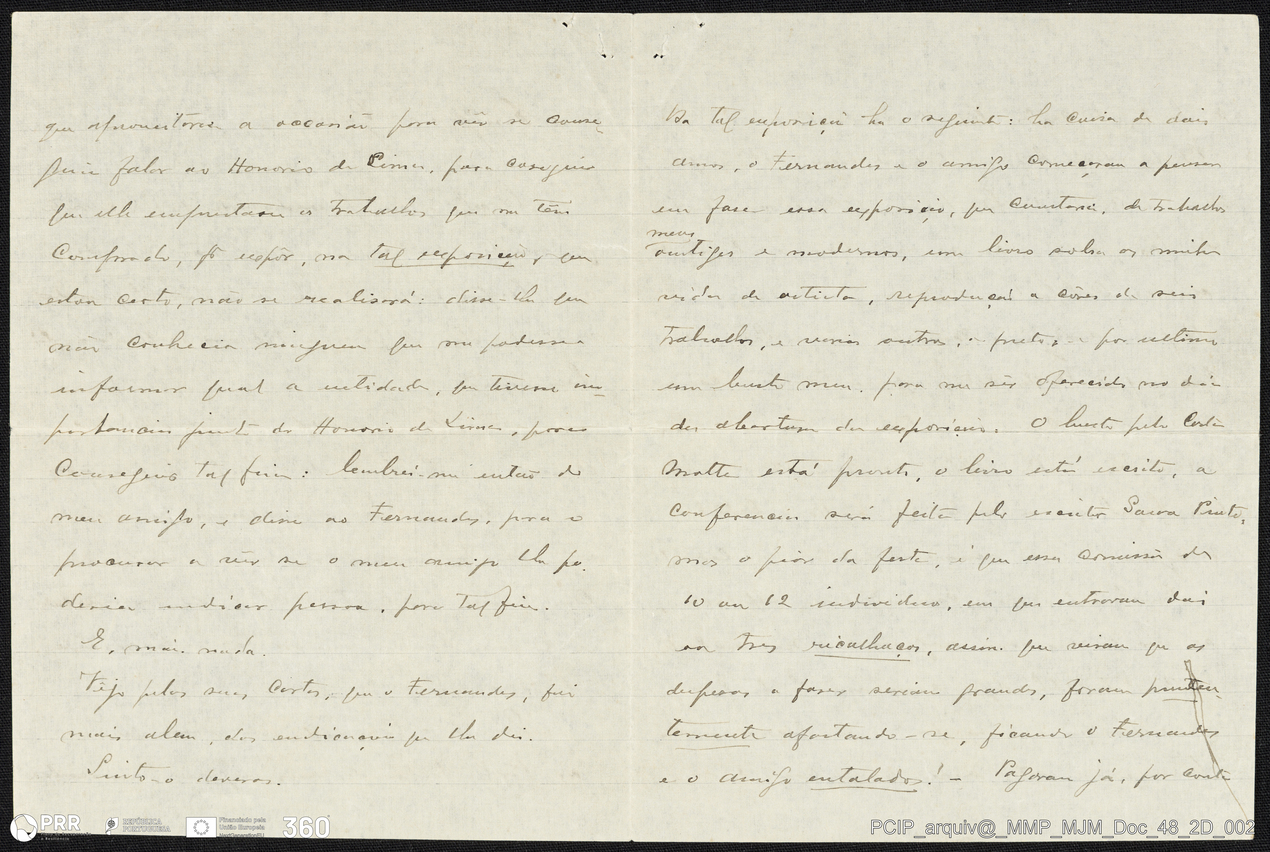 que aproveitaria a occasião para vêr se conse-
guia falar ao Honorio de Lima, para conseguir
que elle emprestasse os trabalhos que me tem
Comprado, pª expôr, na tal exposição, que
estou certo, não se realisará: disse-lhe que
não conhecia ninguem que me podesse
informar qual a entidade, que tivesse im-
portancia junto do Honorio de Lima, para
Conseguir tal fim: lembrei-me então do
meu amigo, e disse ao Fernandes, para o
procurar a vêr se o meu amigo lhe po-
deria indicar pessoa, para tal fim.
E, mais nada.
Vejo pelas suas Cartas, que o Fernandes, foi
mais alem, das indicações que lhe dei.
Sinto-o deveras.
Da tal exposição ha o seguinte: ha coisa de dois
annos, o Fernandes e o amigo começaram a pensar
em fazer essa exposição, que Constaria, de trabalhos
meus
antigos e modernos, um livro sobre a minha
vida de artista, reprodução a côres de seis
trabalhos, e varios outros, a preto, e por ultimo
um busto meu, para me sêr oferecido no dia
da abertura da exposição. O busto pelo Costa
Motta está pronto, o livro está escrito, a
Conferencia será feita pelo escritor Sousa Pinto,
mas o pior da festa, é que essa Comissão de
10 ou 12 individuos, em que entravam dois
ou tres ricalhaços, assim que viram que as
despesas a fazer seriam grandes, foram pruden-
temente afastando-se, ficando o Fernandes
e o amigo entalados! - Pagaram já, por conta
PRR
REPÚBLICA PORTUGUESA
Financiado pela
União Europeia
NextGenerationEU
360
PCIP_arquiv@_MMP_MJM_Doc_48_2D_002